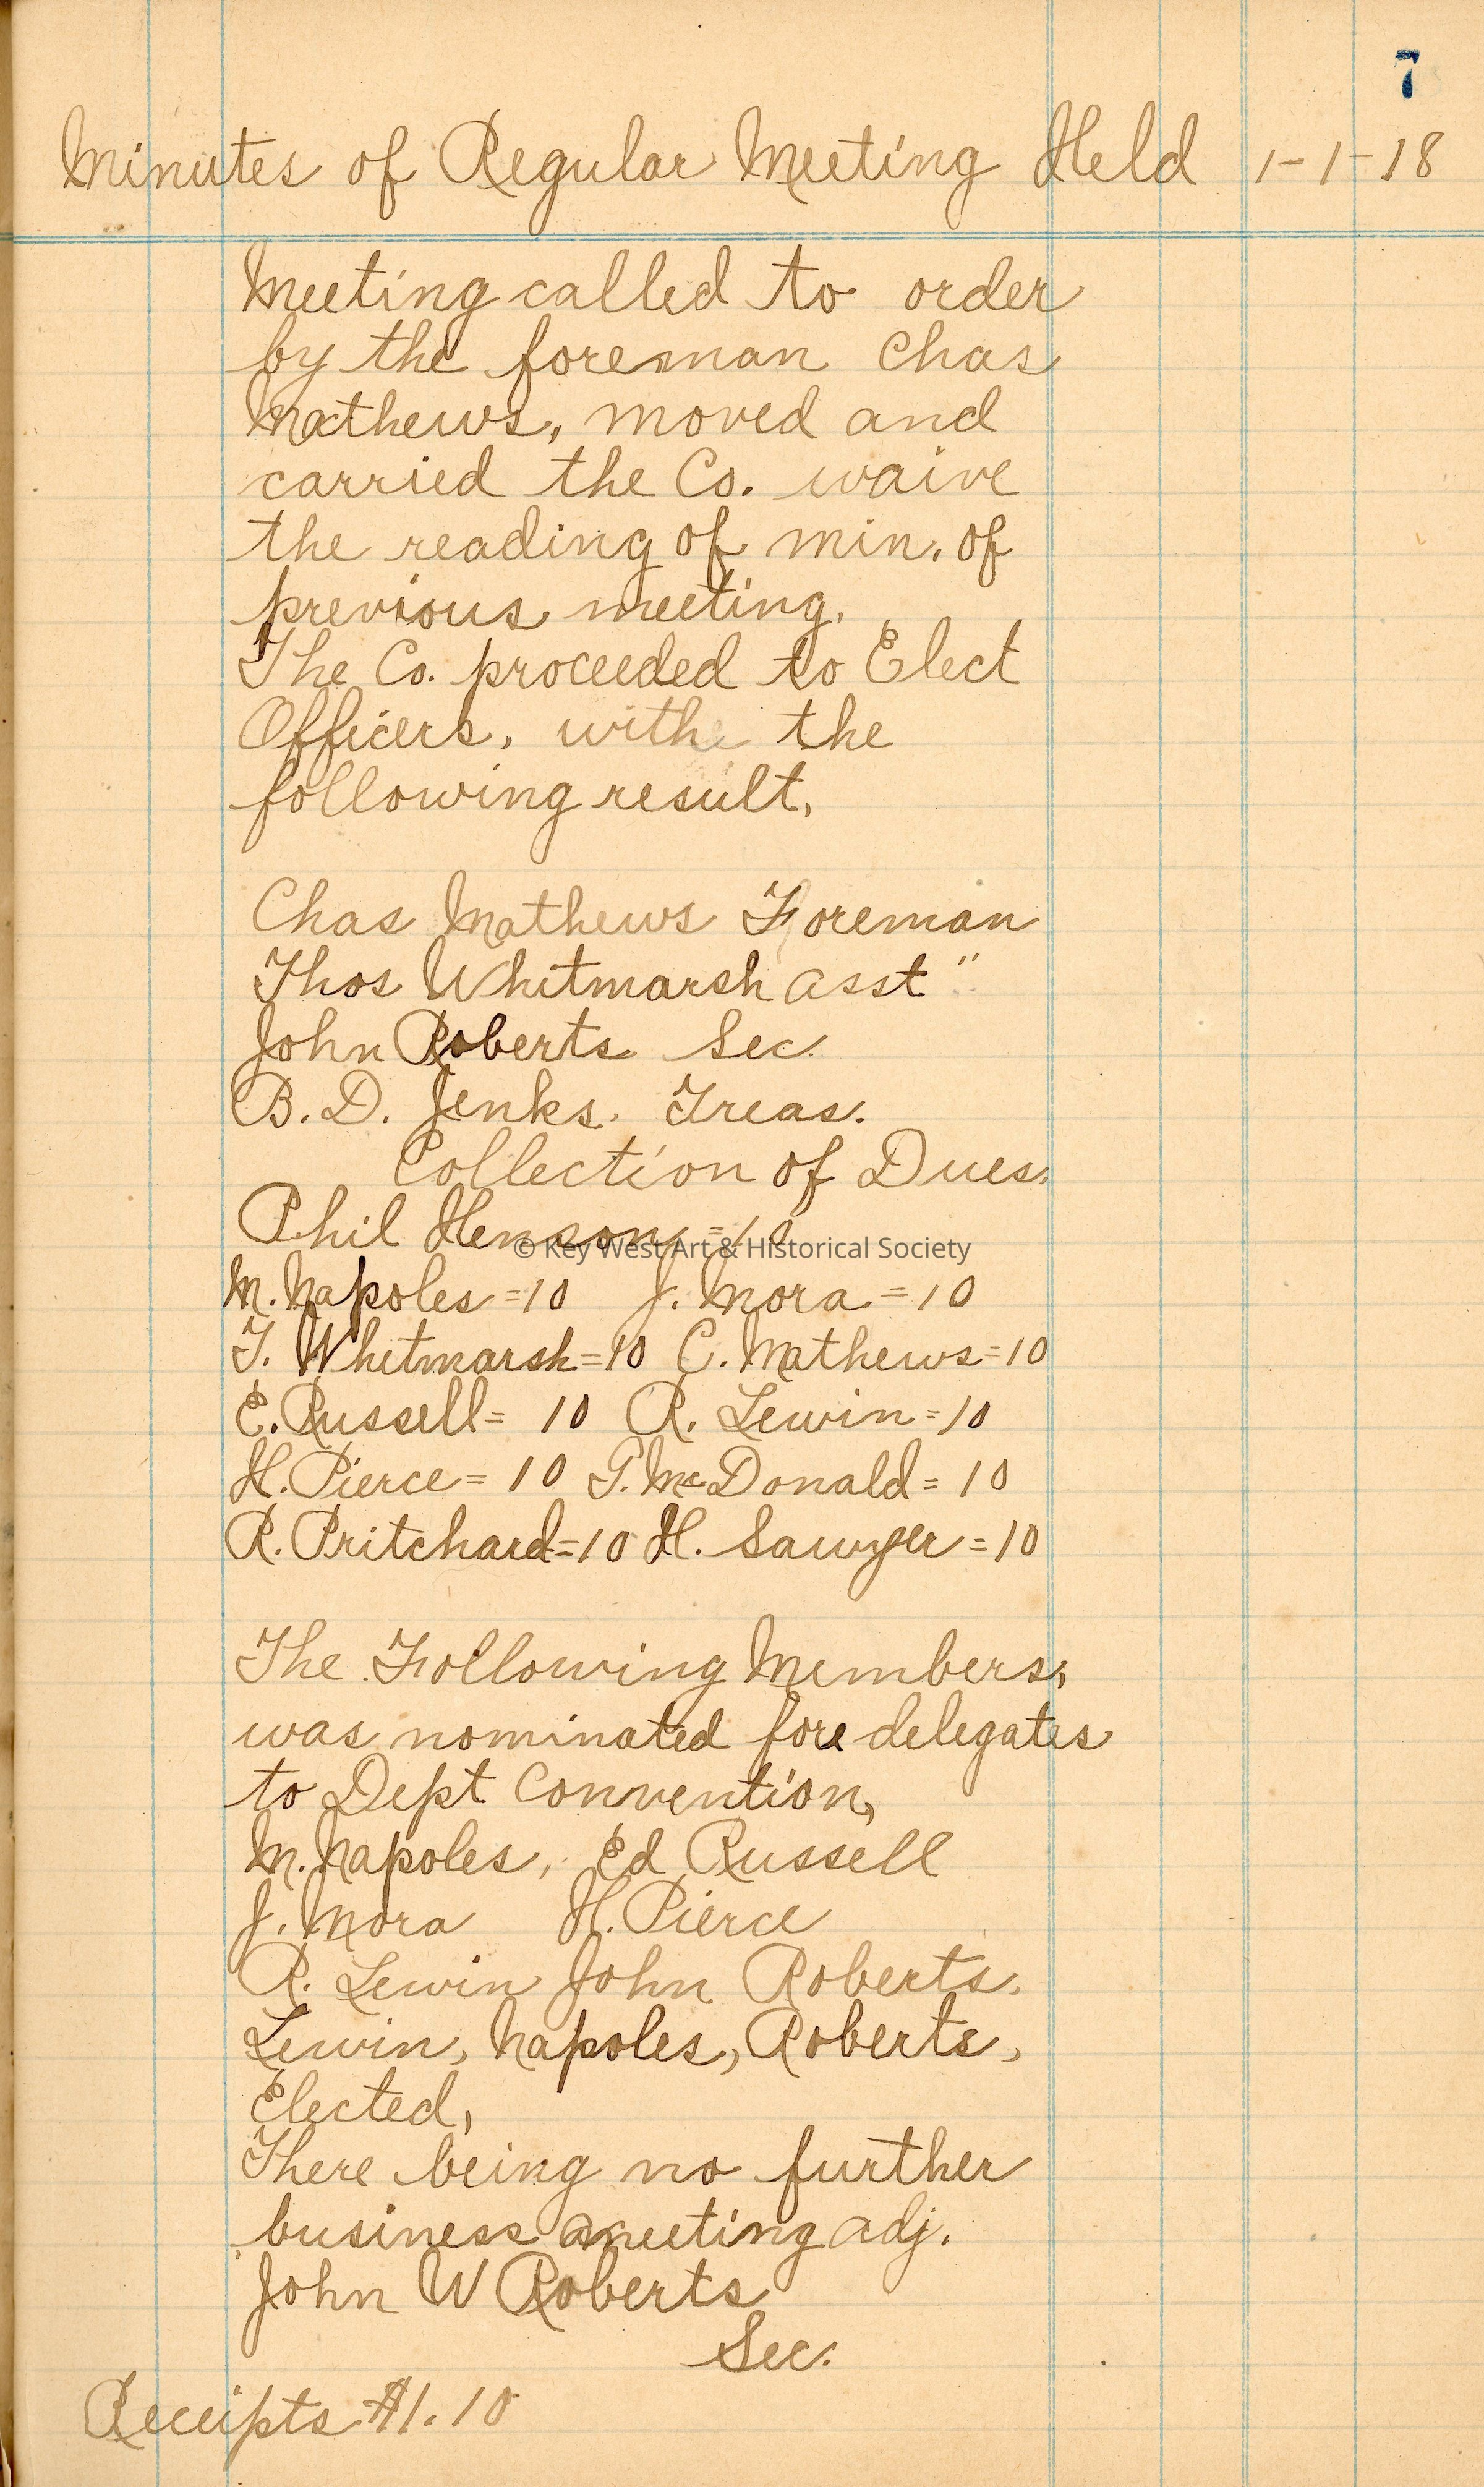 7
Minutes of Regular Meeting Held 1-1-18
Meeting called to order
by the foreman Chas
Mathews, moved and
carried the Co. waive
the reading of min. of
previous meeting.
The Co. proceeded to Elect
Officers, with the
following result,
Chas Mathews Foreman
Thos Whitmarsh asst "
John Roberts Sec.
B. D. Jenks. Treas.
Collection of Dues.
Phil Henson = 10
© Key West Art & Historical Society
M. Napoles = 10 J. Mora = 10
T. Whitmarsh = 10 C. Mathews = 10
E. Russell = 10 R. Lewin = 10
H. Pierce = 10 G. McDonald = 10
R. Pritchard = 10 H. Sawyer = 10
The Following Members,
was nominated fore delegates
to Dept Convention,
M. Napoles, Ed Russell
J. Mora H. Pierce
R. Lewin John Roberts.
Lewin, Napoles, Roberts,
Elected,
There being no further
business meeting adj.
John W Roberts
Sec.
Receipts $1.10